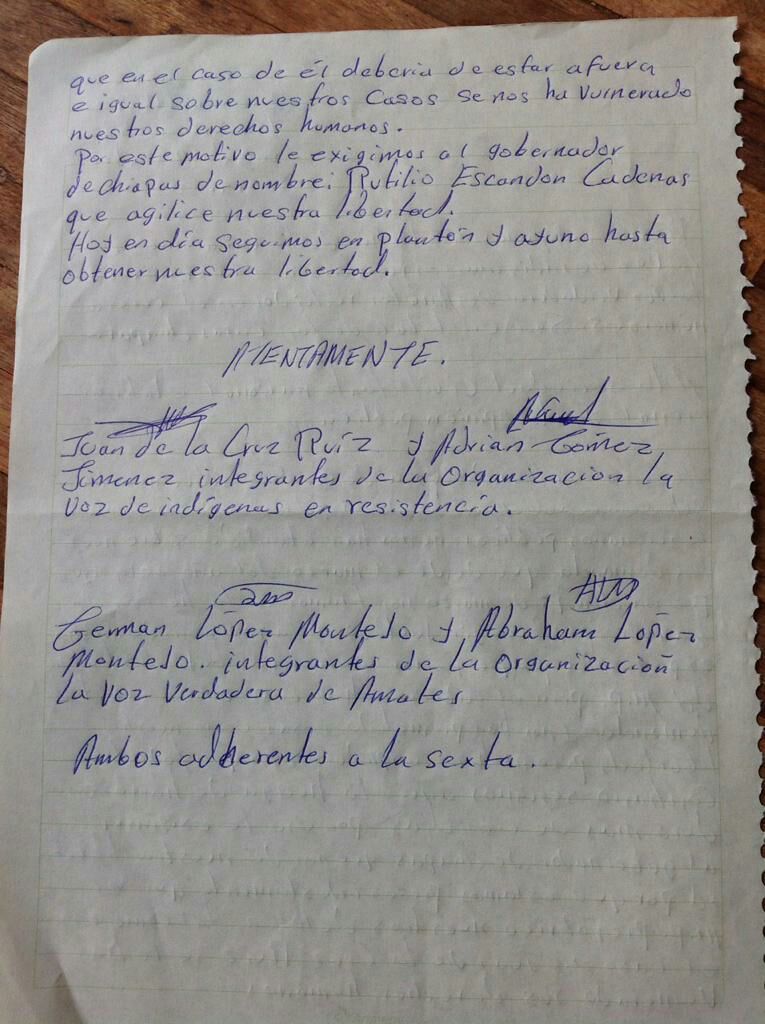 que en el caso de él deberia de estar afuera
e igual sobre nuestros casos se nos ha vurnerado
nuestros derechos humanos.
Por este motivo le exigimos al gobernador
de chiapas de nombre: Rutilio Escandon Cadenas
que agilice nuestra libertad.
Hoy en día seguimos en plantón y ayuno hasta
obtener nuestra libertad.
ATENTAMENTE.
Juan de la Cruz Ruíz y Adrian Gómez
Jimenez integrantes de la Organizacion la
Voz de indígenas en resistencía.
German López Montejo y Abraham López
Montejo. integrantes de la Organización
la Voz Verdadera de Amates
Ambos adherentes a la sexta.